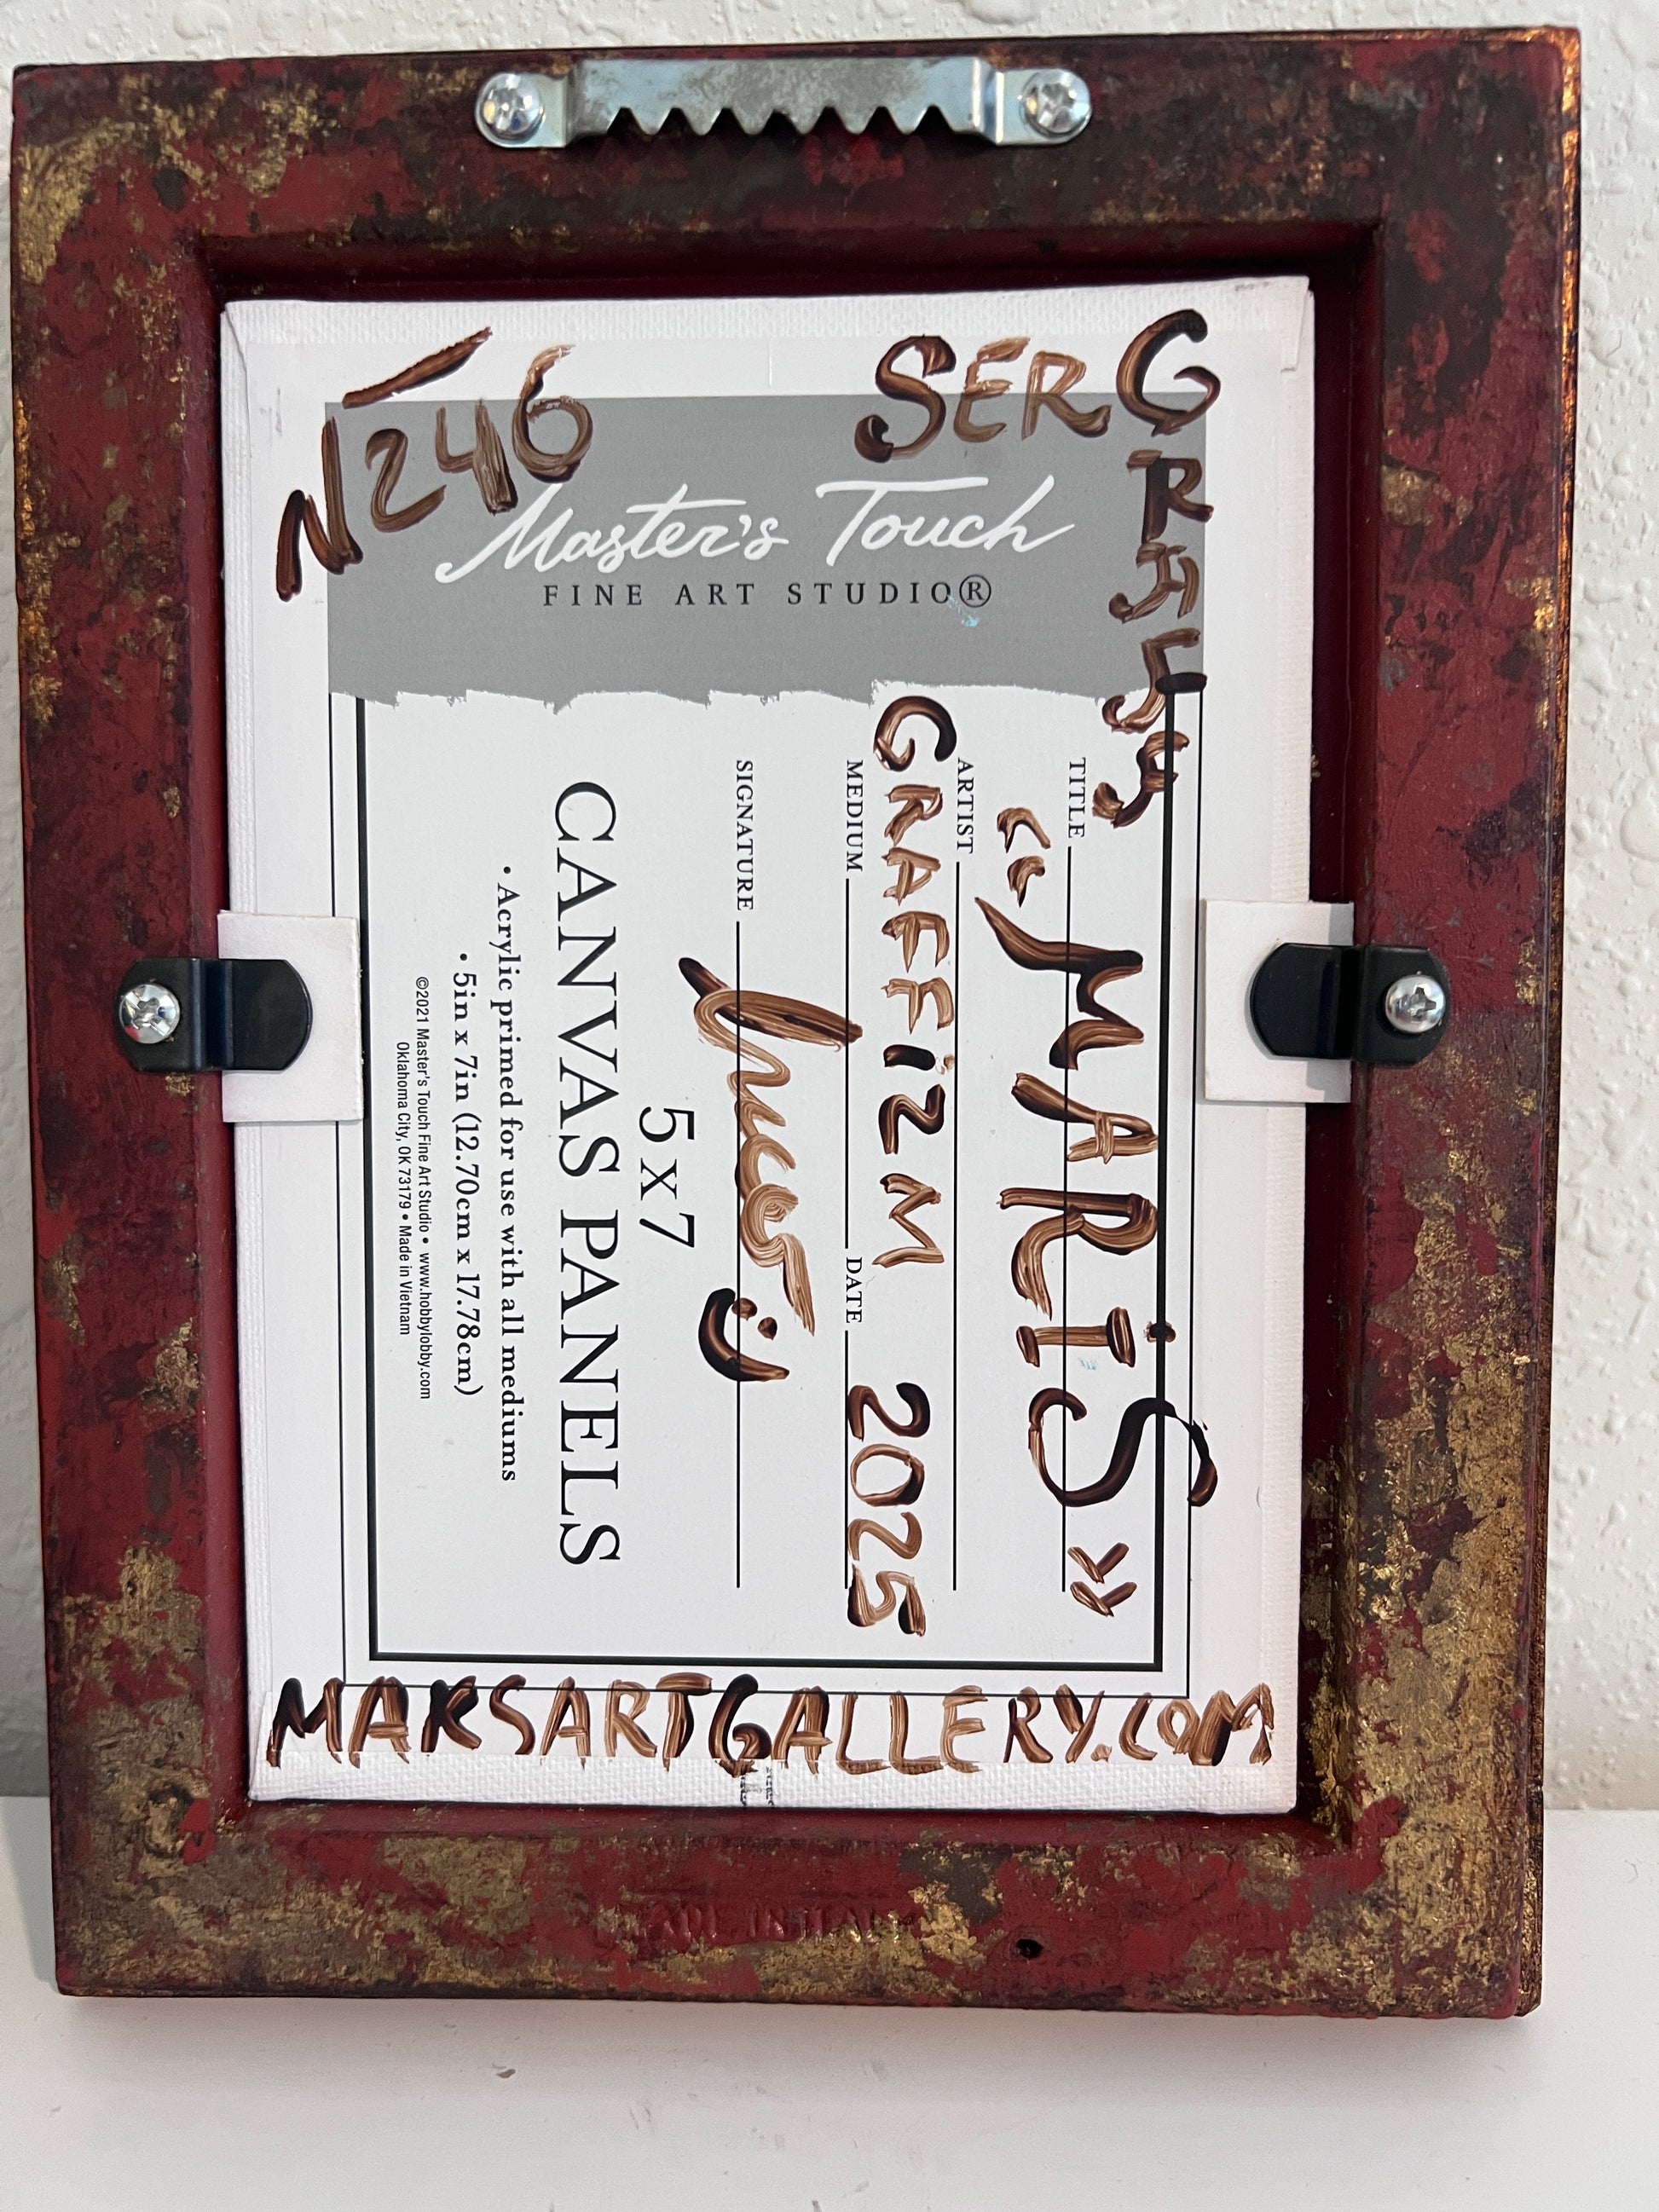 N246
SERG
Master's Touch
FINE ART STUDIO®
TITLE
« MARiS »
ARTIST
GRAFFiZM
MEDIUM DATE 2025
SIGNATURE
5 x 7
CANVAS PANELS
• Acrylic primed for use with all mediums
• 5in x 7in (12.70cm x 17.78cm)
©2021 Master's Touch Fine Art Studio • www.hobbylobby.com
Oklahoma City, OK 73179 • Made in Vietnam
MAKSARTGALLERY.COM